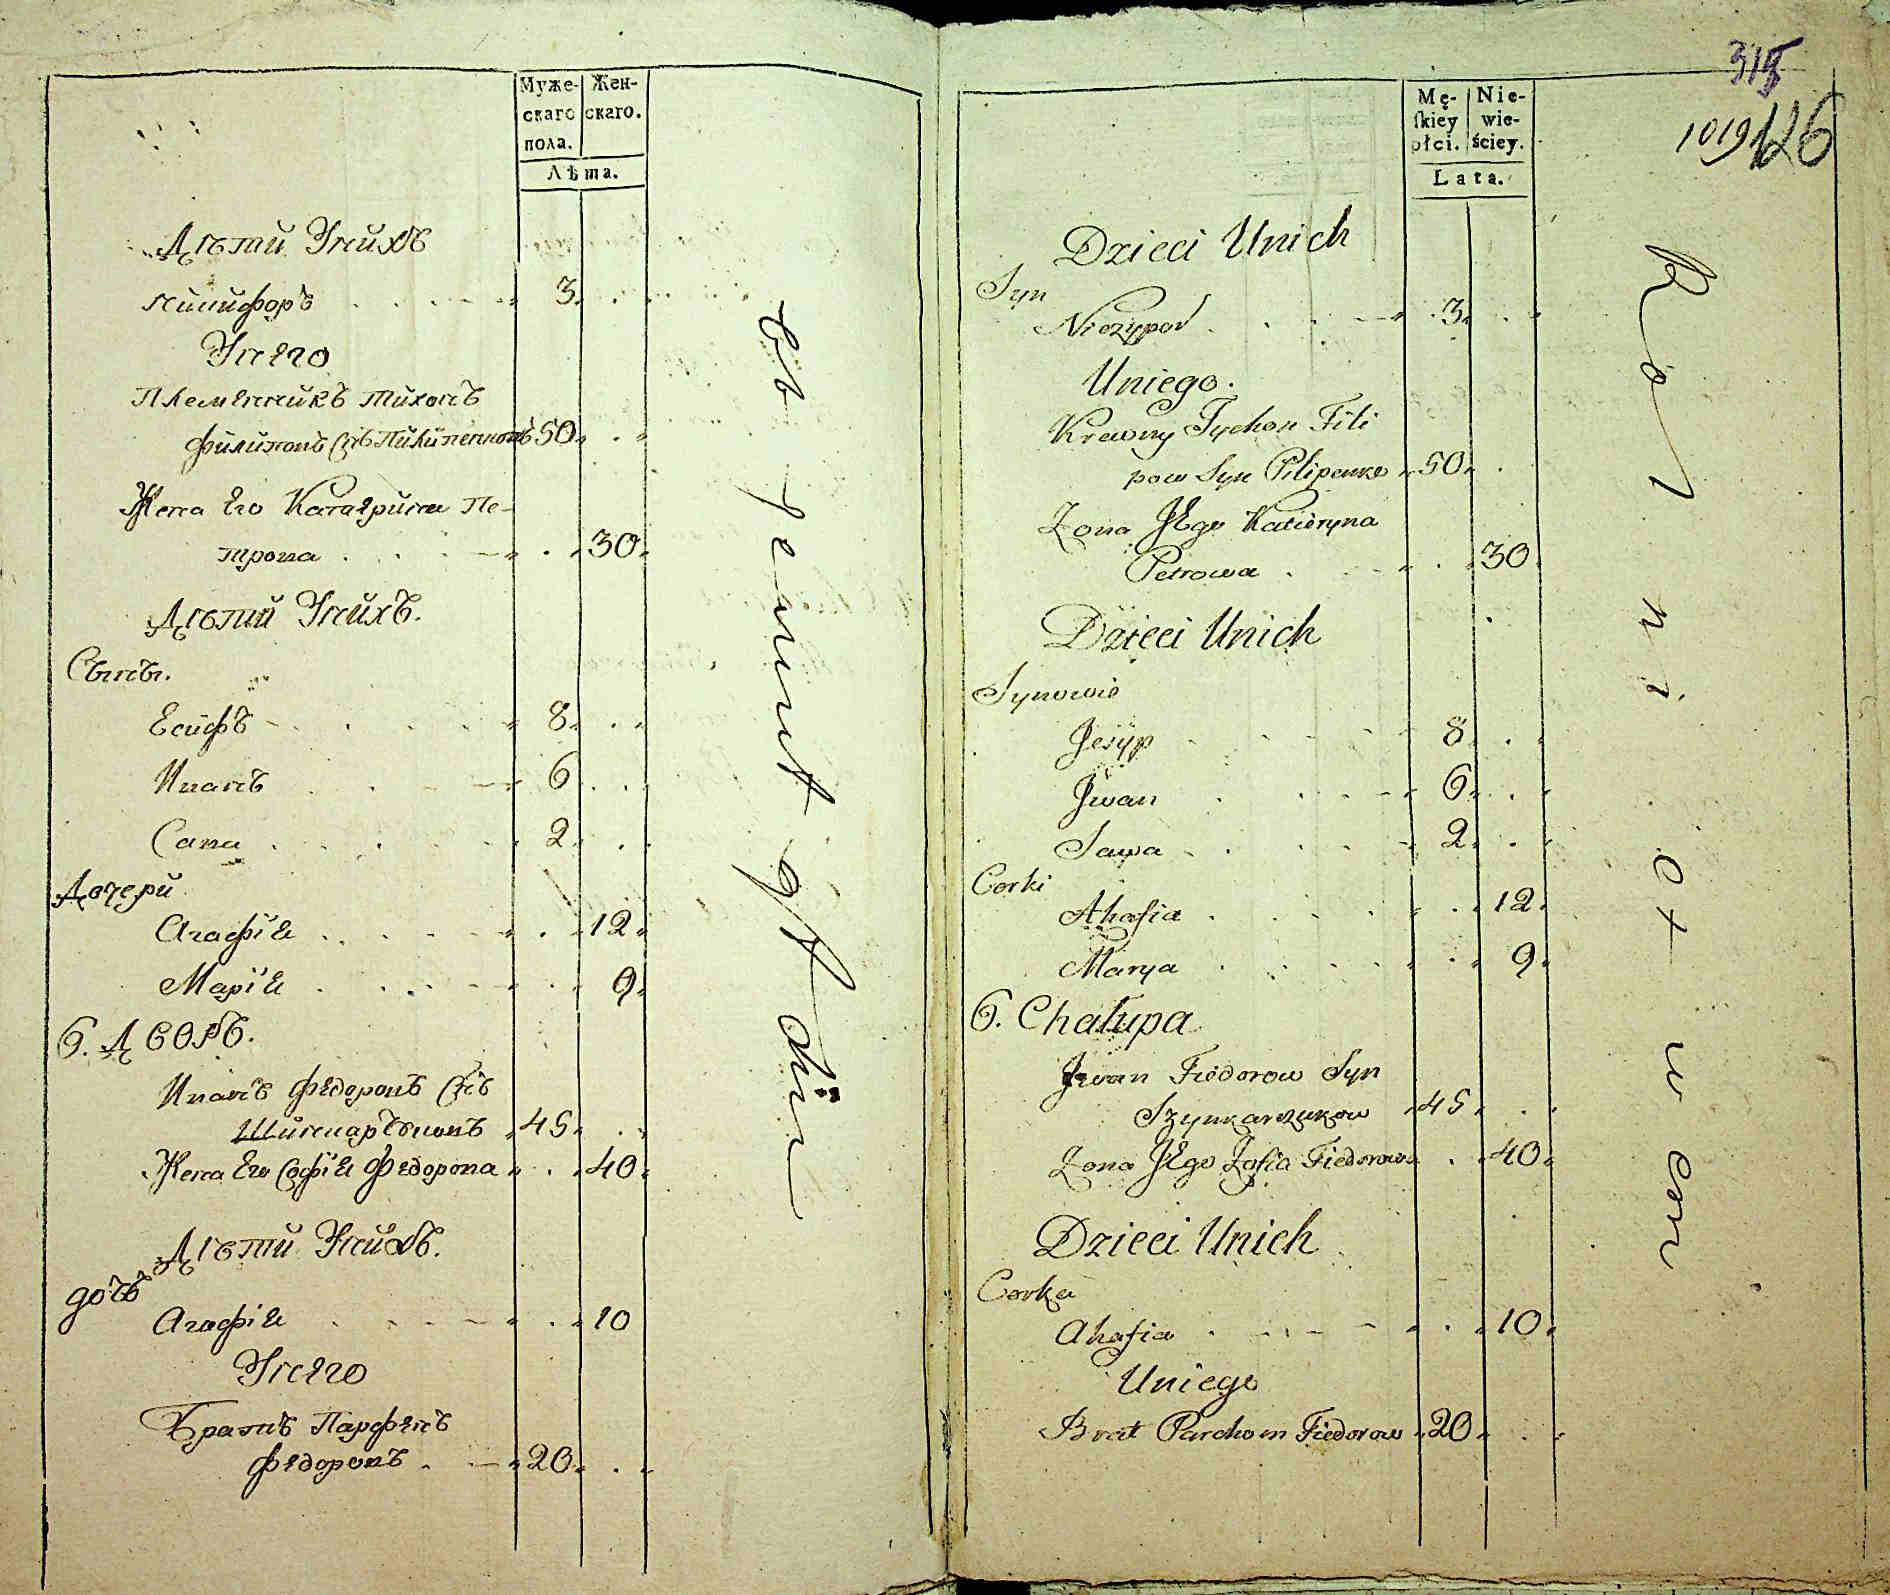 Муже-
скаго
пола.
Жен-
скаго.
Лѣта.
Дѣти Унихъ
Ничифоръ 3
Унего
Племенникъ Тихонъ
Филиповъ снъ Пилипенковъ 50
Жена Его Катерина Пе-
трова 30
Дѣти Унихъ.
Сыны.
Есифъ 8
Иванъ 6
Сава 2
Дочери
Агафія 12
Марія 9
6. Дворъ.
Иванъ Федоровъ снъ
Шинкарчуковъ 45
Жена Его Софія Федорова 40
Дѣти Унихъ.
дочь
Агафія 10
Унего
Братъ Парфенъ
Федоровъ 20
315
1019 126
Mę-
ſkiey
płci.
Nie-
wie-
ściey.
Lata.
Dzieci Unich
Syn
Niczypor 3
Uniego.
Krewny Tychon Fili
pow Syn Pilipenko 50
Zona JEgo Katieryna
Petrowa 30
Dzieci Unich
Synowie
Jesyp 8
Jwan 6
Sawa 2
Corki
Ahafia 12
Marya 9
6. Chałupa
Jwan Fiedorow Syn
Szynkarczukow 45
Zona JEgo Zofia Fiedorowa 40
Dzieci Unich
Corka
Ahafia 10
Uniego
Brat Parchom Fiedorow 20